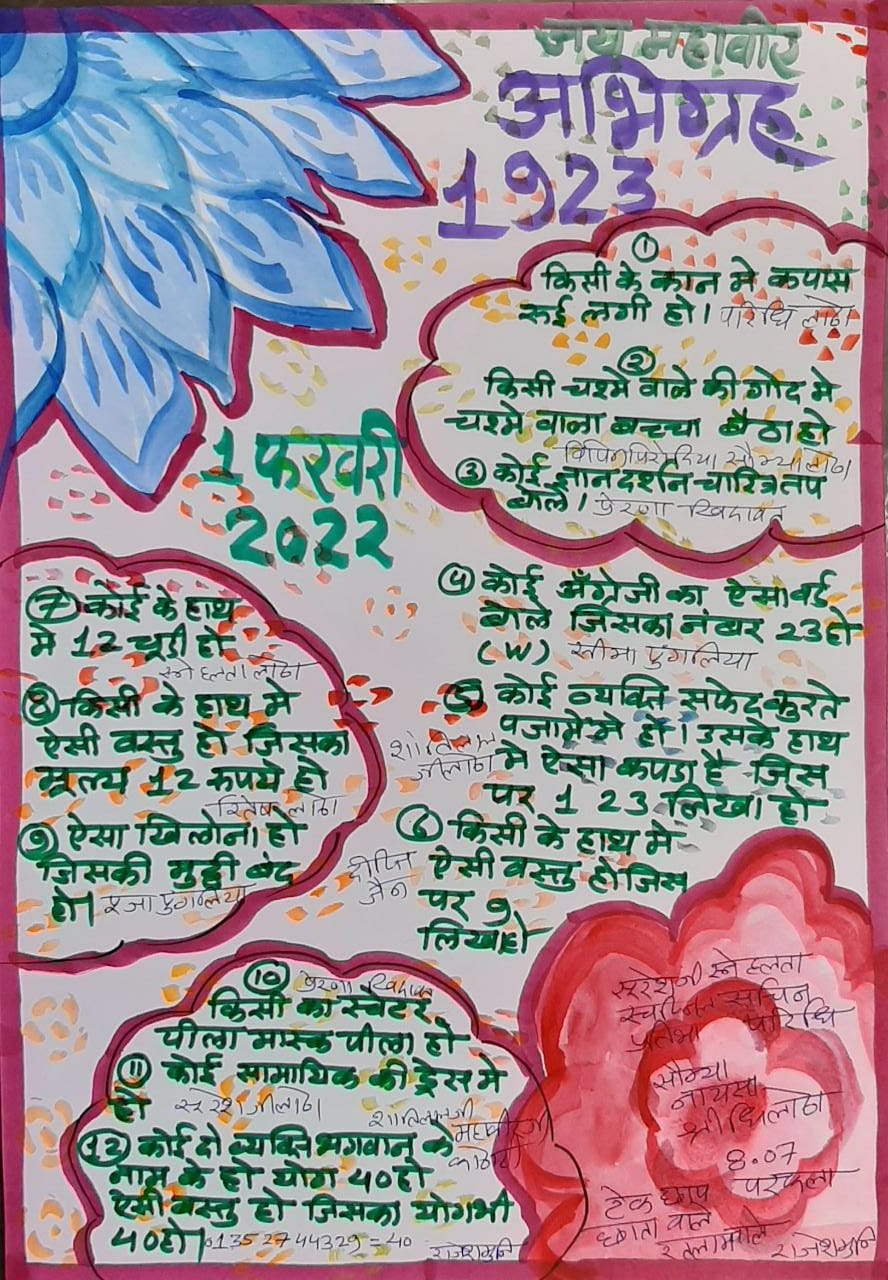 जय महावीर
अभिग्रह
1923
1 फरवरी
2022
①
किसी के कान मे कपास
रूई लगी हो। परिधि लोढा
②
किसी चश्मे वाले की गोद मे
चश्मे वाला बच्चा बैठा हो
सौम्या लोढा
③ कोई ज्ञान दर्शन चारित्र तप
बोले। प्रेरणा खिंदावत
④ कोई अँग्रेजी का ऐसा वर्ड
बोले जिसका नंबर 23 हो
(W) सीमा पुगलिया
⑤ कोई व्यक्ति सफेद कुरते
पजामे मे हो। उसके हाथ
मे ऐसा कपडा है जिस
पर 1 2 3 लिखा हो
शांतिलाल
जी लोढा
⑥ किसी के हाथ मे
ऐसी वस्तु हो जिस
पर 9
लिखा हो
दीप्ति
जैन
⑦ कोई के हाथ
मे 12 चूडी हो
स्नेहलता लोढा
⑧ किसी के हाथ मे
ऐसी वस्तु हो जिसका
मूल्य 12 रूपये हो
रितेष लोढा
⑨ ऐसा खिलोना हो
जिसकी मुट्ठी बंद
हो। पुगलिया
⑩ प्रेरणा खिंदावत
किसी का स्वेटर
पीला मास्क पीला हो
⑪ कोई सामायिक की ड्रेस मे
हो सुरेश जी लोढा
शांतिलालजी
महावीरजी
⑫ कोई दो व्यक्ति भगवान के
नाम के हो योग 40 हो
ऐसी वस्तु हो जिसका योग भी
40 हो। 0135274 4329 = 40
राजेशमुनि
सुरेशजी स्नेहलता
स्वप्निल सचिन
प्रतिभा परिधि
सौम्या
नायसा
श्रीधि लोढा
8.07
टेक छाप परकला
छाता वाले
रतलामवाले
राजेशमुनि